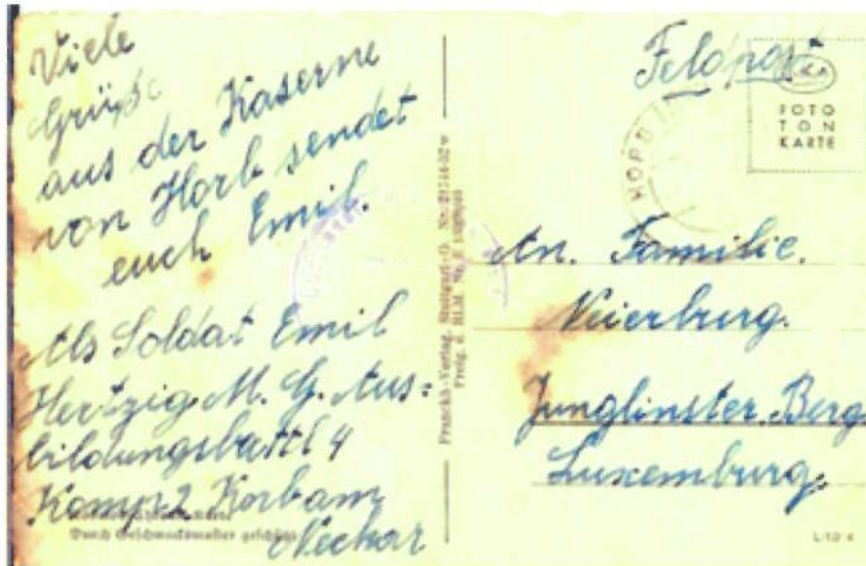 Viele
Grüße
aus der Kaserne
von Horb sendet
euch Emil.
Als Soldat Emil
Hertzig M. G. Aus=
bildungsbattl 4
Komp 2 Horb am
Neckar
Durch Geschmacksmuster geschützt
Franckh-Verlag, Stuttgart-O.
Freig. d. RLM
Feldpost
HORB
FOTO
TON
KARTE
An. Familie.
Neierburg.
Junglinster. Berg.
Luxemburg.